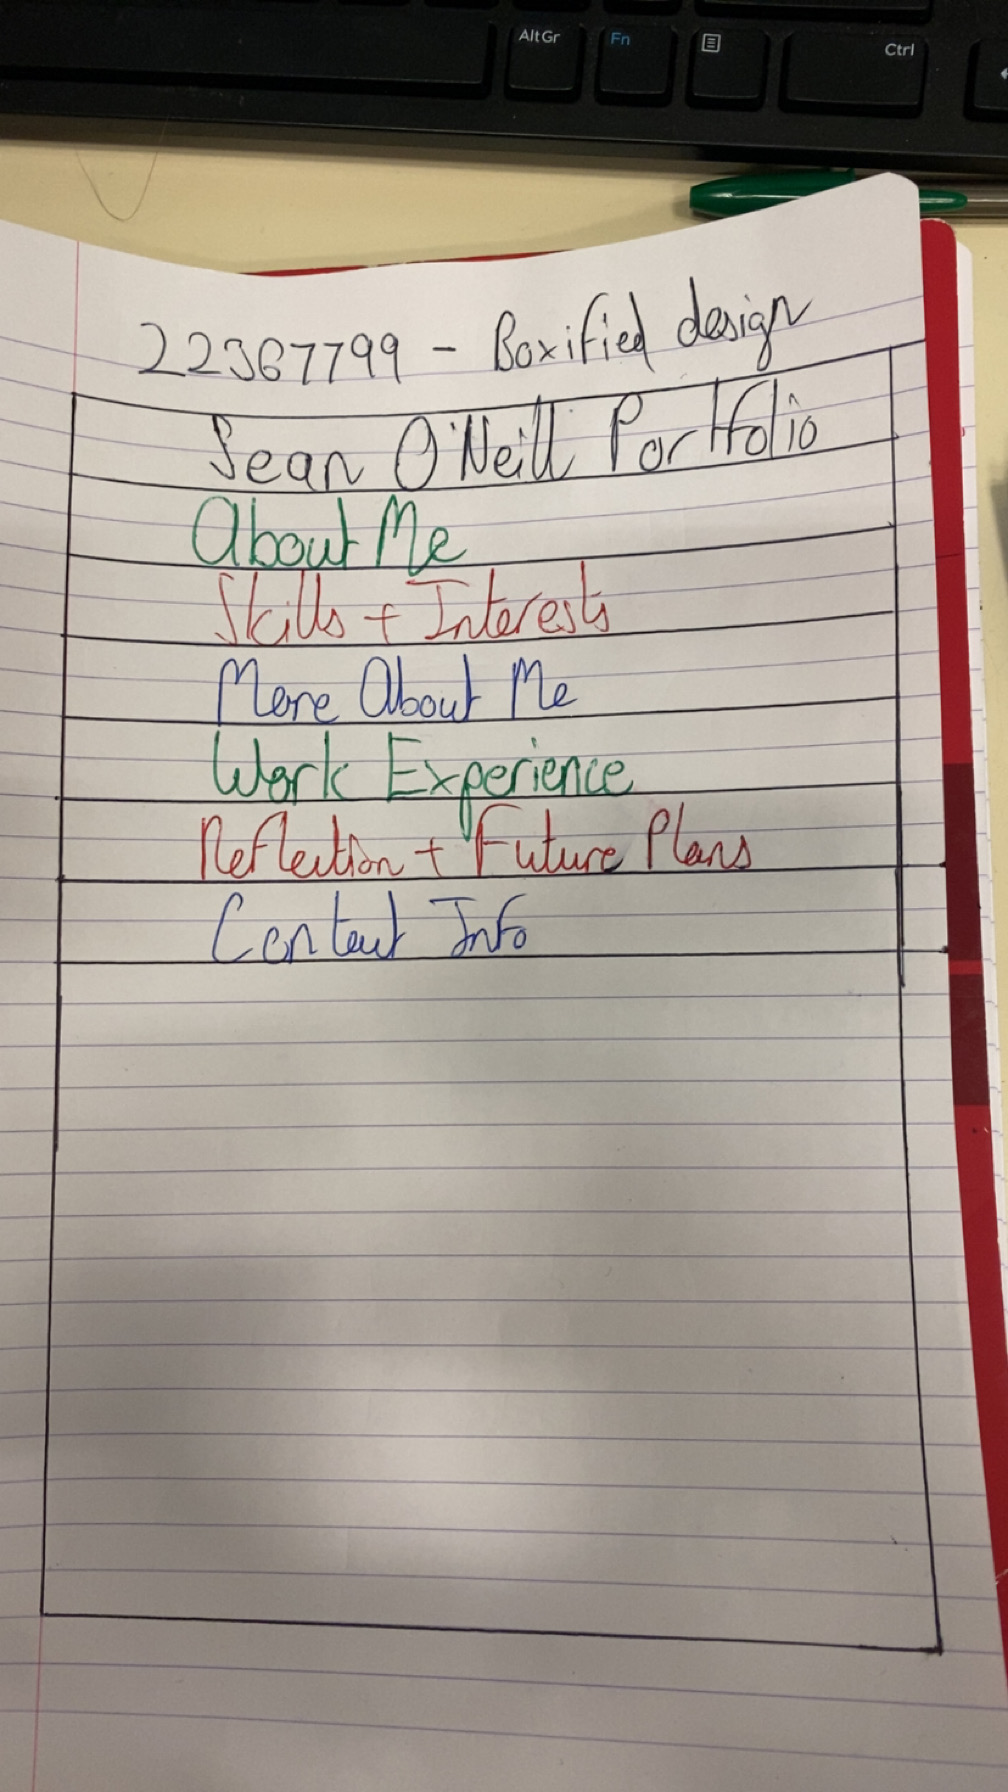 AltGr Fn Ctrl
22367799 - Boxified design
Sean O'Neill Portfolio
About Me
Skills + Interests
More About Me
Work Experience
Reflection + Future Plans
Contact Info